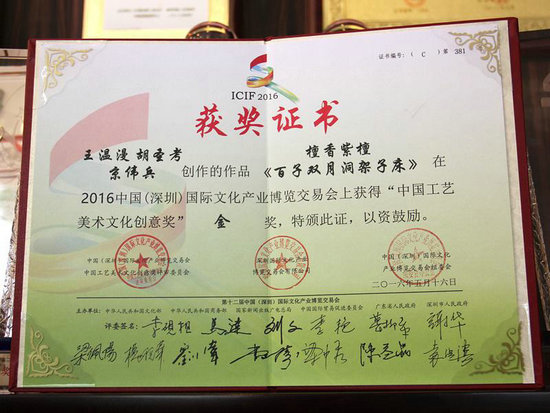 证书编号：（ C ）第 381
ICIF 2016
获奖证书
王温漫 胡圣考 檀香紫檀
京伟兵 创作的作品《百子双月洞架子床》在
2016中国（深圳）国际文化产业博览交易会上获得“中国工艺
美术文化创意奖” 金 奖，特颁此证，以资鼓励。
中国（深圳）国际文化产业博览交易会 深圳国际文化产业 中国（深圳）国际文化
中国工艺美术文化创意奖评审委员会 博览交易会有限公司 产业博览交易会组委会
二〇一六年五月十六日
第十二届中国（深圳）国际文化产业博览交易会
主办单位：中华人民共和国文化部 中华人民共和国商务部 国家新闻出版广电总局 中国国际贸易促进委员会 广东省人民政府 深圳市人民政府
评委签名：